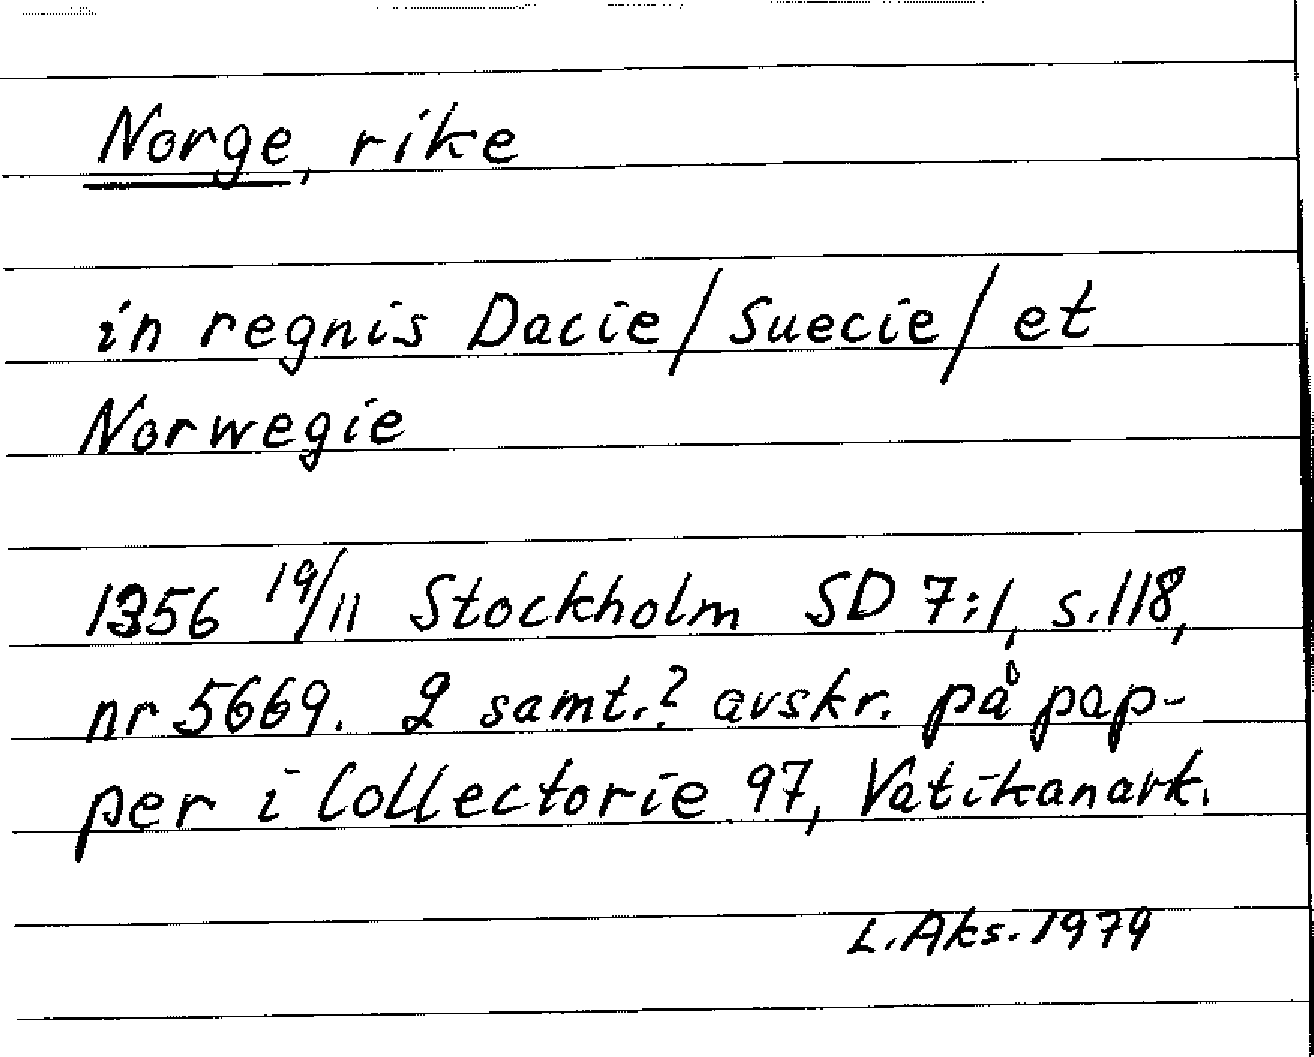 Norge, rike
in regnis Dacie/Suecie/et
Norwegie
1356 19/11 Stockholm SD 7:1, s.118,
nr 5669. 2 samt.? avskr. på pap-
per i Collectorie 97, Vatikanark.
L.Aks. 1979